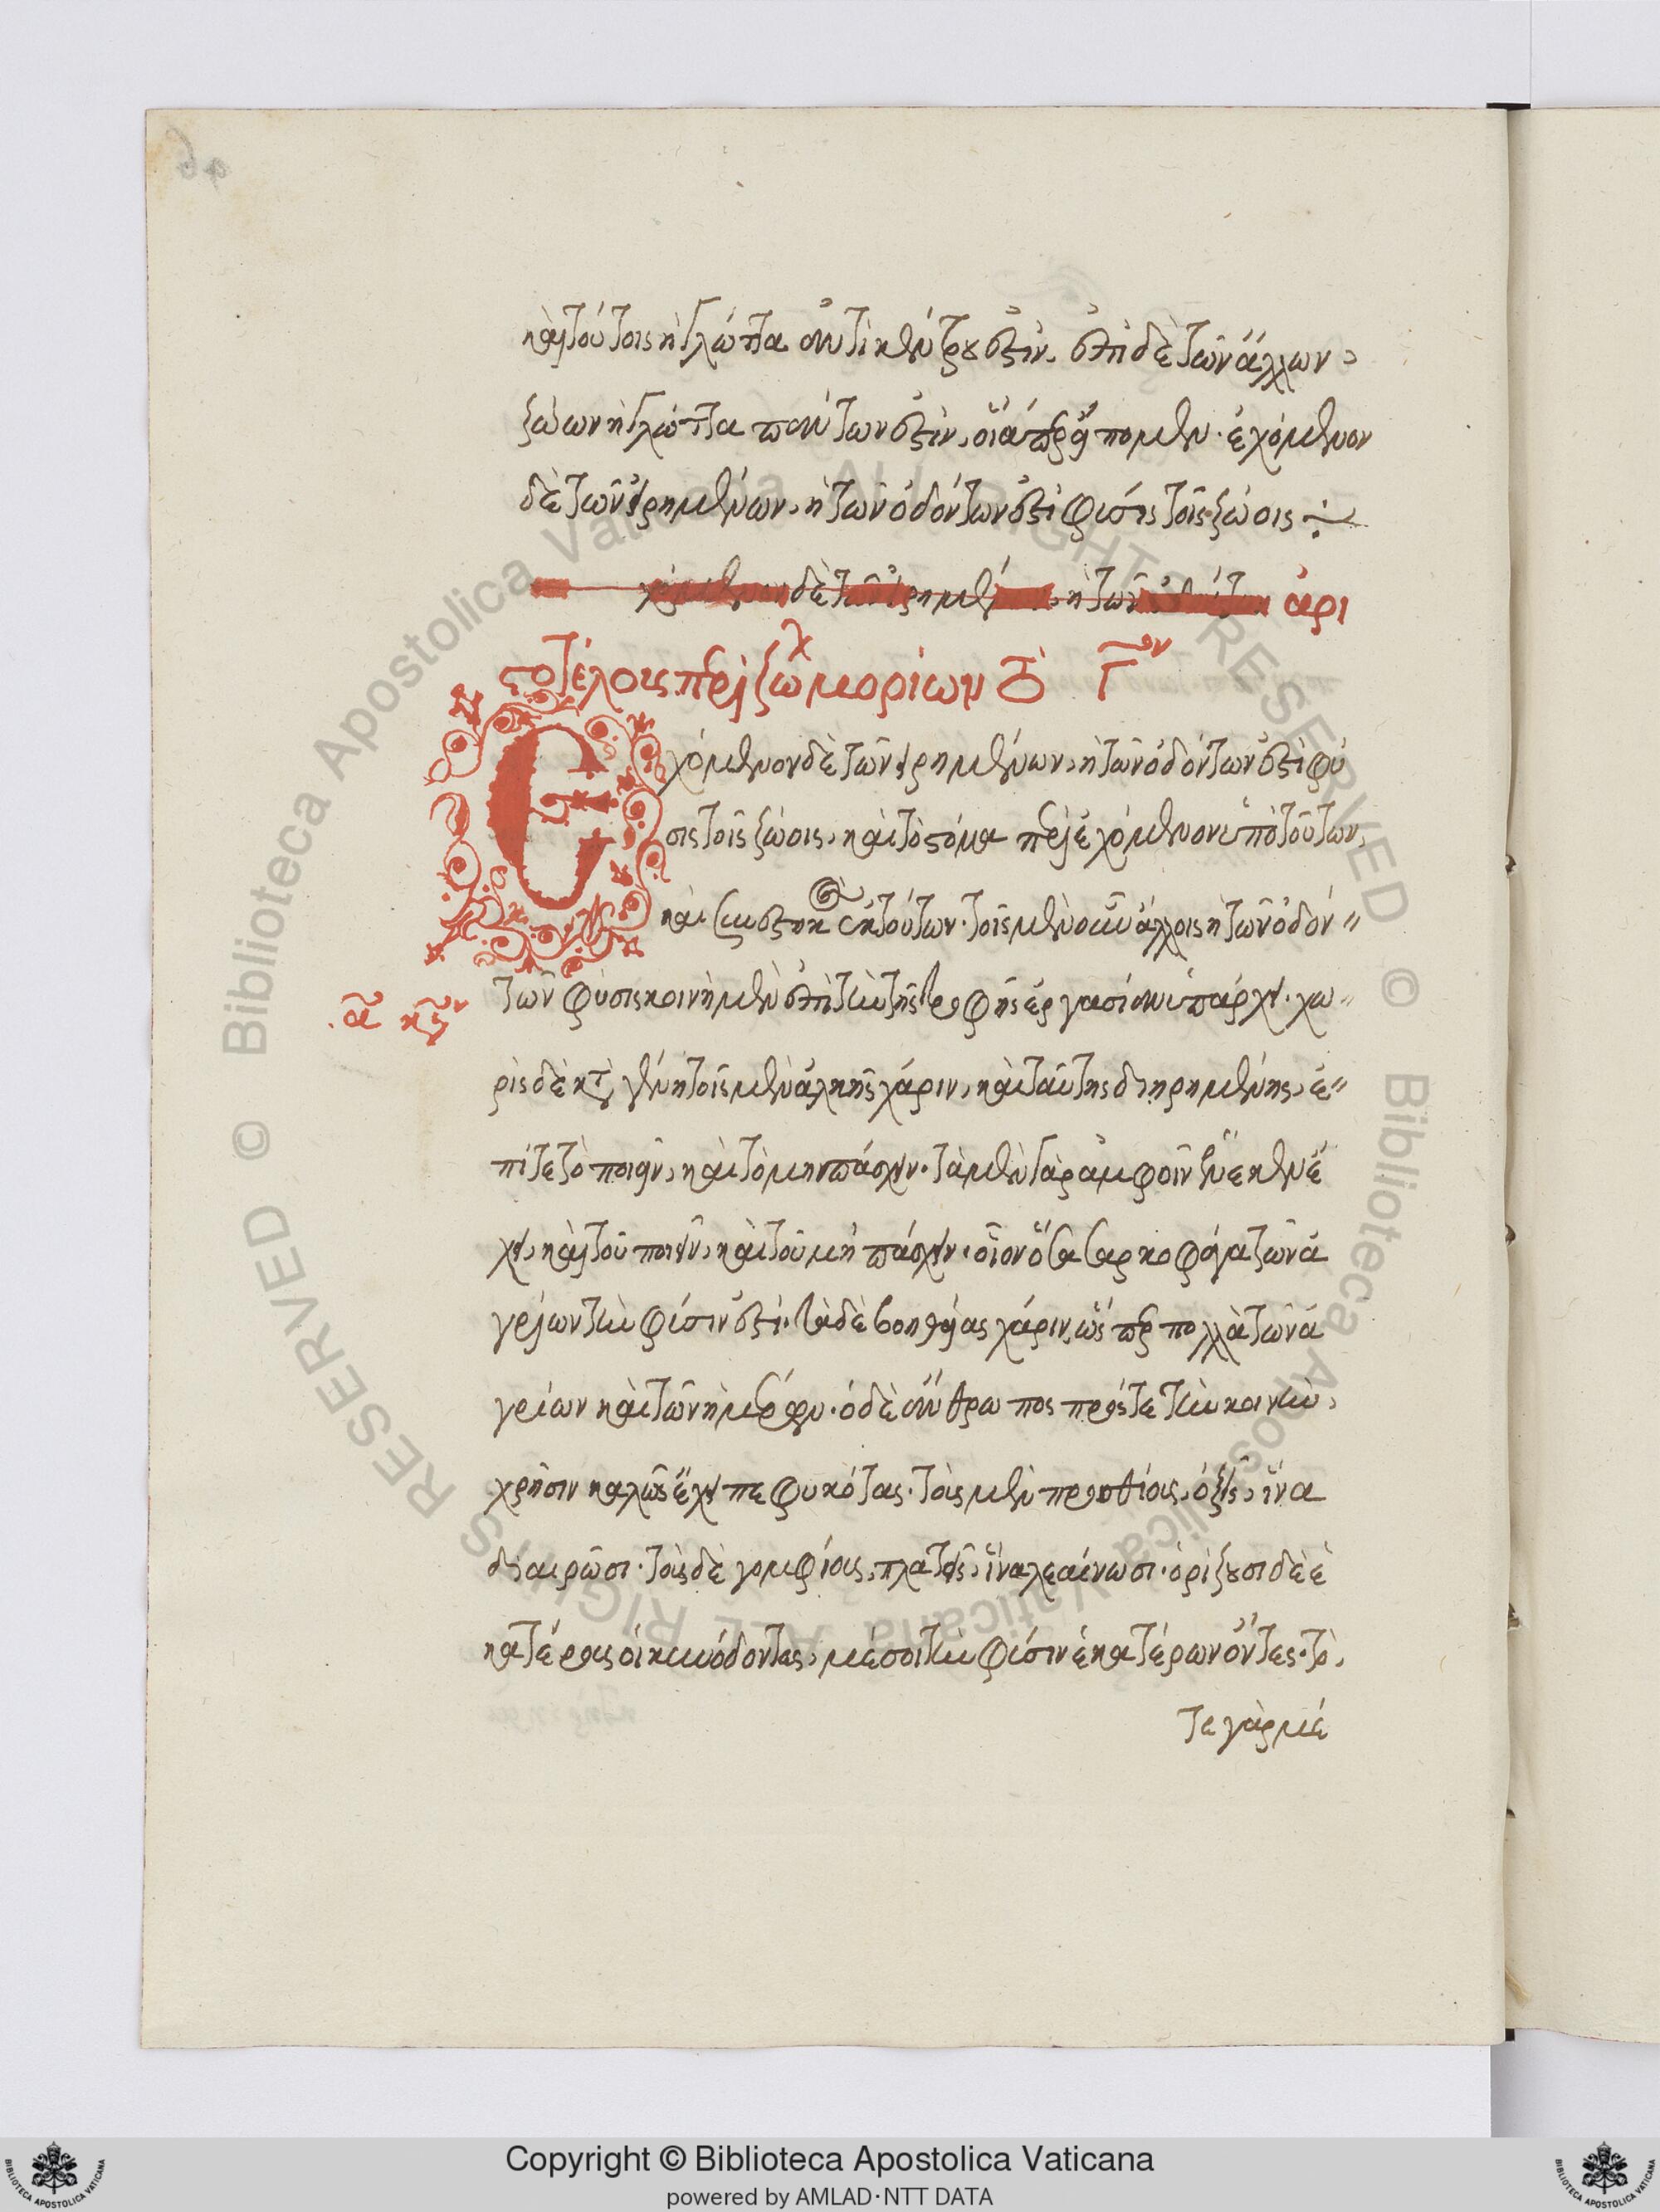 καὶ τούτοις ἡ γλῶττα ἀντὶ κέντρου ἐστίν. ἐπὶ δὲ τῶν ἄλλων
ζώων ἡ γλῶττα πάντων ἐστὶν, οἵα περ εἴπομεν. ἐχόμενον
δὲ τῶν εἰρημένων, ἡ τῶν ὀδόντων ἐστὶ φύσις τοῖς ζώοις
χόμενον δὲ τῶν εἰρημένων, ἡ τῶν ὀδόντων ἀρι
στοτέλους περὶ ζώων μορίων τὸ Γον
Ἐχόμενον δὲ τῶν εἰρημένων, ἡ τῶν ὀδόντων ἐστὶ φύ
σις τοῖς ζώοις, καὶ τὸ στόμα περιεχόμενον ὑπὸ τούτων,
καὶ συνεστηκὸς ἐκ τούτων. τοῖς μὲν οὖν ἄλλοις ἡ τῶν ὀδόν
των φύσις κοινὴ μὲν ἐπὶ τὴν τῆς τροφῆς ἐργασίαν ὑπάρχει. χω
ρὶς δὲ κατὰ γένη τοῖς μὲν ἀλκῆς χάριν, καὶ ταύτης διῃρημένης, ἐ
πί τε τὸ ποιεῖν, καὶ τὸ μὴ πάσχειν. τὰ μὲν γὰρ ἀμφοῖν ἕνεκεν ἔ
χει, καὶ τοῦ ποιεῖν, καὶ τοῦ μὴ πάσχειν. οἷον ὅσα σαρκοφάγα τῶν ἀ
γρίων τὴν φύσιν ἐστί. τὰ δὲ βοηθείας χάριν, ὥσπερ πολλὰ τῶν ἀ
γρίων καὶ τῶν ἡμέρων. ὁ δὲ ἄνθρωπος πρός τε τὴν κοινὴν
χρῆσιν καλῶς ἔχει πεφυκότας. τοὺς μὲν προσθίους, ὀξεῖς, ἵνα
διαιρῶσι. τοὺς δὲ γομφίους, πλατεῖς, ἵνα λεαίνωσι. ὁρίζουσι δὲ ἑ
κατέρους οἱ κυνόδοντες, μέσοι τὴν φύσιν ἑκατέρων ὄντες. τό
τε γὰρ μέ
Copyright © Biblioteca Apostolica Vaticana
powered by AMLAD·NTT DATA